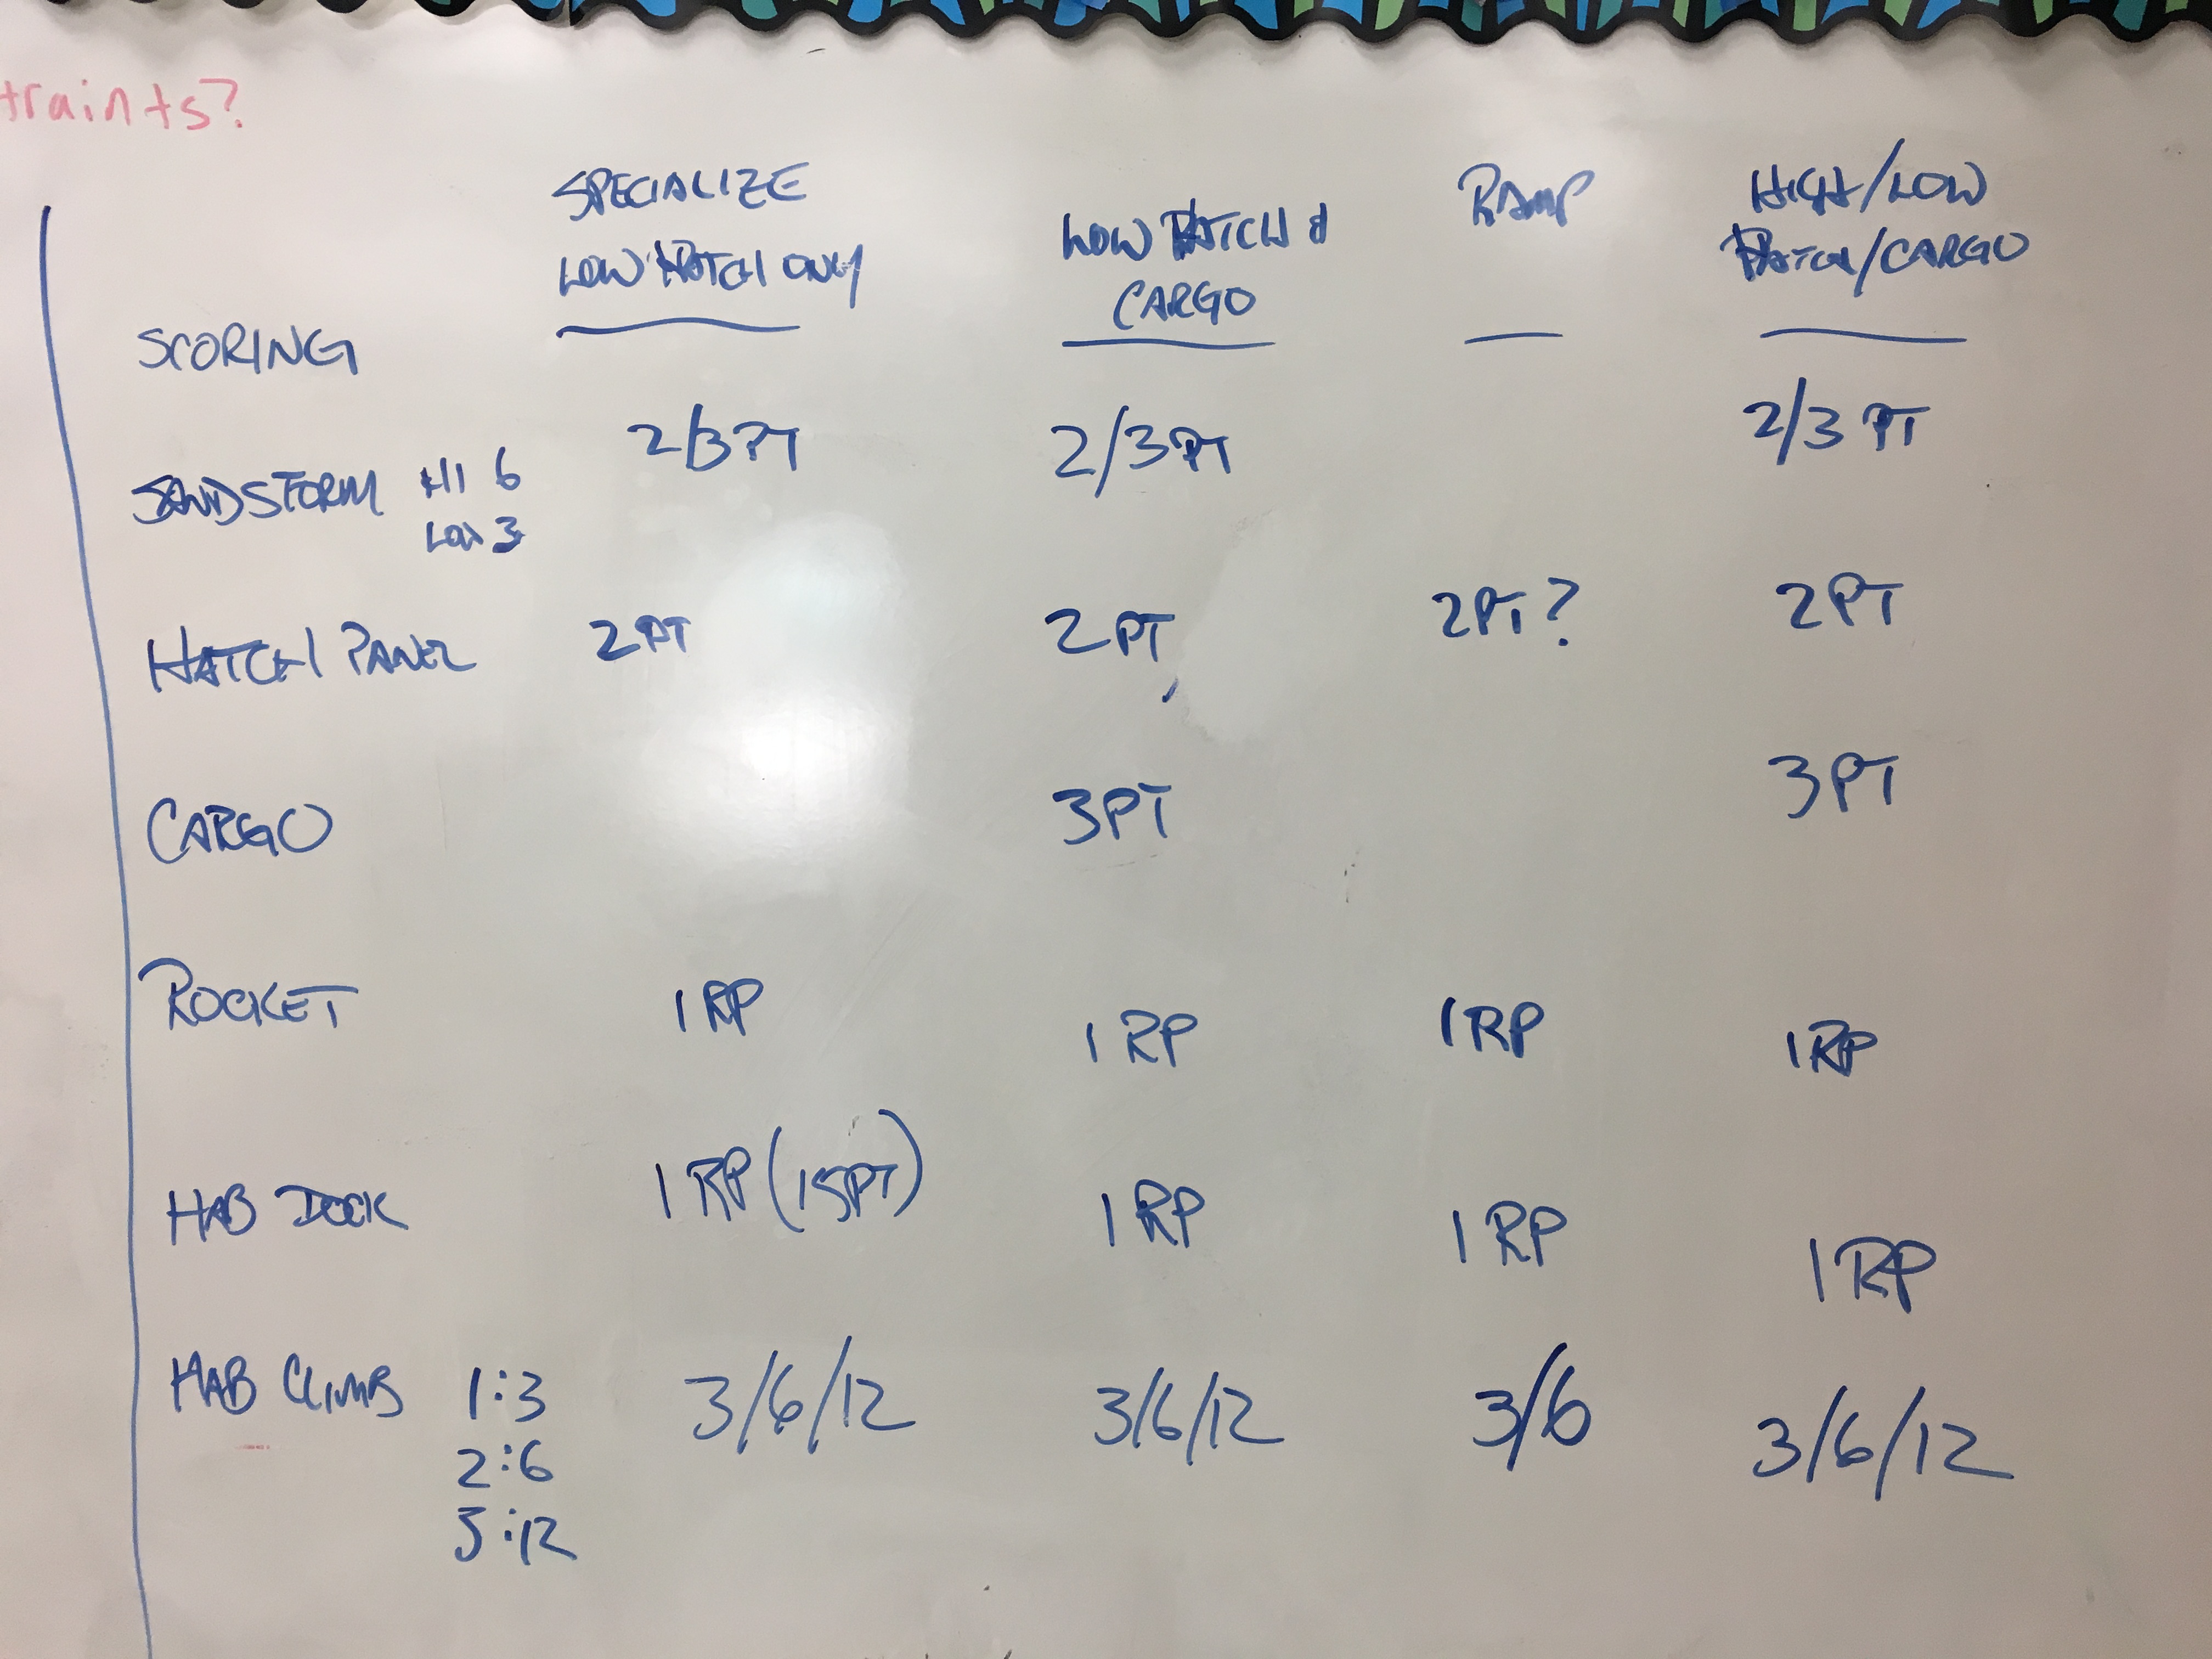 traints?
SPECIALIZE
LOW HATCH ONLY
LOW HATCH &
CARGO
RAMP
HIGH/LOW
HATCH/CARGO
SCORING
SANDSTORM HI 6
LOW 3
2/3 PT
2/3 PT
2/3 PT
HATCH PANEL 2 PT 2 PT 2 PT? 2 PT
CARGO 3 PT 3 PT
ROCKET 1 RP 1 RP 1 RP 1 RP
HAB DOCK 1 RP (15PT) 1 RP 1 RP 1 RP
HAB CLIMB 1:3 3/6/12 3/6/12 3/6 3/6/12
2:6
3:12